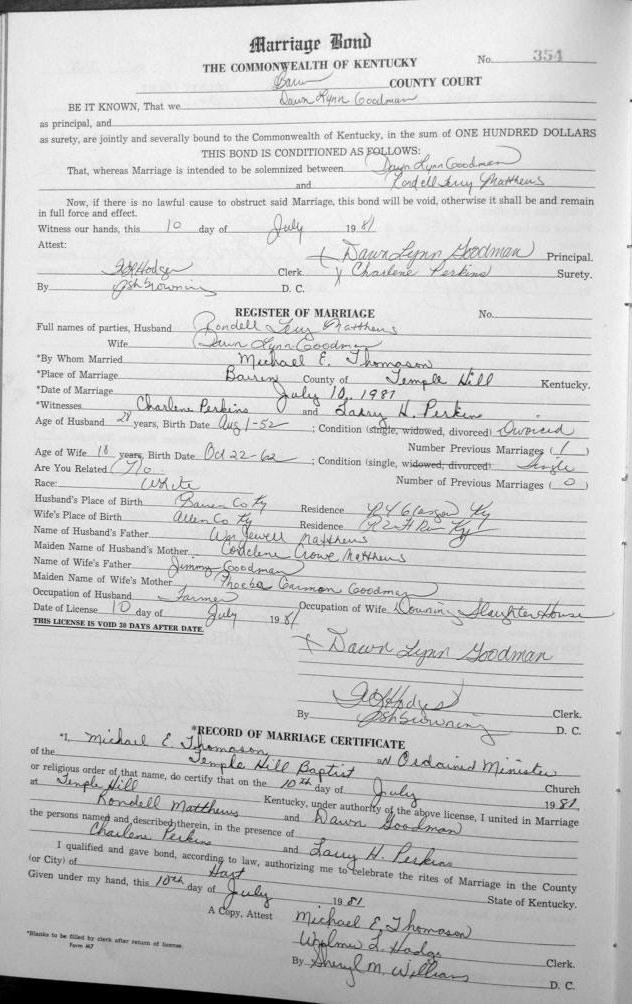 Marriage Bond
No. 354
THE COMMONWEALTH OF KENTUCKY
Barren COUNTY COURT
BE IT KNOWN, That we Dawn Lynn Goodman
as principal, and
as surety, are jointly and severally bound to the Commonwealth of Kentucky, in the sum of ONE HUNDRED DOLLARS
THIS BOND IS CONDITIONED AS FOLLOWS:
That, whereas Marriage is intended to be solemnized between Dawn Lynn Goodman
and Rondell Terry Matthews
Now, if there is no lawful cause to obstruct said Marriage, this bond will be void, otherwise it shall be and remain
in full force and effect.
Witness our hands, this 10 day of July 1981
Attest: x Dawn Lynn Goodman Principal.
Hodges Clerk x Charlene Perkins Surety.
By D. C.
REGISTER OF MARRIAGE No.
Full names of parties, Husband Rondell Terry Matthews
Wife Dawn Lynn Goodman
*By Whom Married Michael E. Thomason
*Place of Marriage Barren County of Temple Hill Kentucky.
*Date of Marriage July 10, 1981
*Witnesses Charlene Perkins and Larry H. Perkins
Age of Husband 28 years, Birth Date Aug 1-52 ; Condition (single, widowed, divorced) Divorced
Number Previous Marriages (1)
Age of Wife 18 years, Birth Date Oct 22-62 ; Condition (single, widowed, divorced) Single
Are You Related (No. Number of Previous Marriages (0)
Race: White
Husband's Place of Birth Barren Co Ky Residence R4 Glasgow Ky
Wife's Place of Birth Allen Co Ky Residence Ky
Name of Husband's Father Jewell Matthews
Maiden Name of Husband's Mother Crowe Matthews
Name of Wife's Father Jimmy Goodman
Maiden Name of Wife's Mother Phoeba Carmon Goodman
Occupation of Husband Farmer Occupation of Wife Downing Slaughter House
Date of License 10 day of July 1981
THIS LICENSE IS VOID 30 DAYS AFTER DATE.
x Dawn Lynn Goodman
Hodges Clerk.
By D. C.
*RECORD OF MARRIAGE CERTIFICATE
*I, Michael E. Thomason an Ordained Minister
of the Temple Hill Baptist Church
or religious order of that name, do certify that on the 10th day of July 1981
at Temple Hill Kentucky, under authority of the above license, I united in Marriage
Rondell Matthews and Dawn Goodman
the persons named and described therein, in the presence of
Charlene Perkins and Larry H. Perkins
I qualified and gave bond, according to law, authorizing me to celebrate the rites of Marriage in the County
(or City) of Hart State of Kentucky.
Given under my hand, this 10th day of July 1981
A Copy, Attest Michael E. Thomason
Hodges Clerk.
By Sheryl M. Williams D. C.
*Blanks to be filled by clerk after return of license.
Form 447